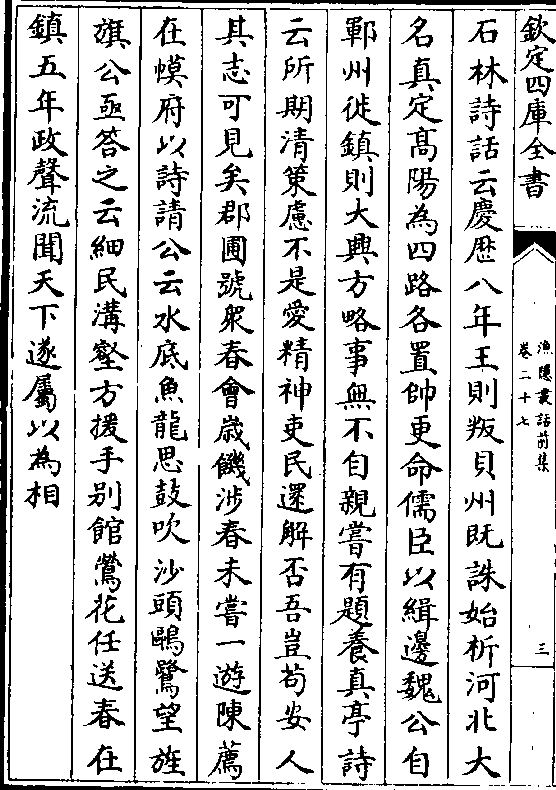 欽定四庫全書
漁隱叢話前集
卷二十七
三
石林詩話云慶厯八年王則叛貝州既誅始析河北大
名真定髙陽為四路各置帥更命儒臣以緝邊魏公自
鄆州徙鎮則大興方略事無不自親嘗有題養真亭詩
云所期清策慮不是愛精神吏民還解否吾豈苟安人
其志可見矣郡圃號衆春會歳饑涉春未嘗一遊陳薦
在幙府以詩請公云水底魚龍思鼓吹沙頭鷗鷺望旌
旗公亟答之云細民溝壑方援手别館鶯花任送春在
鎮五年政聲流聞天下遂屬以為相